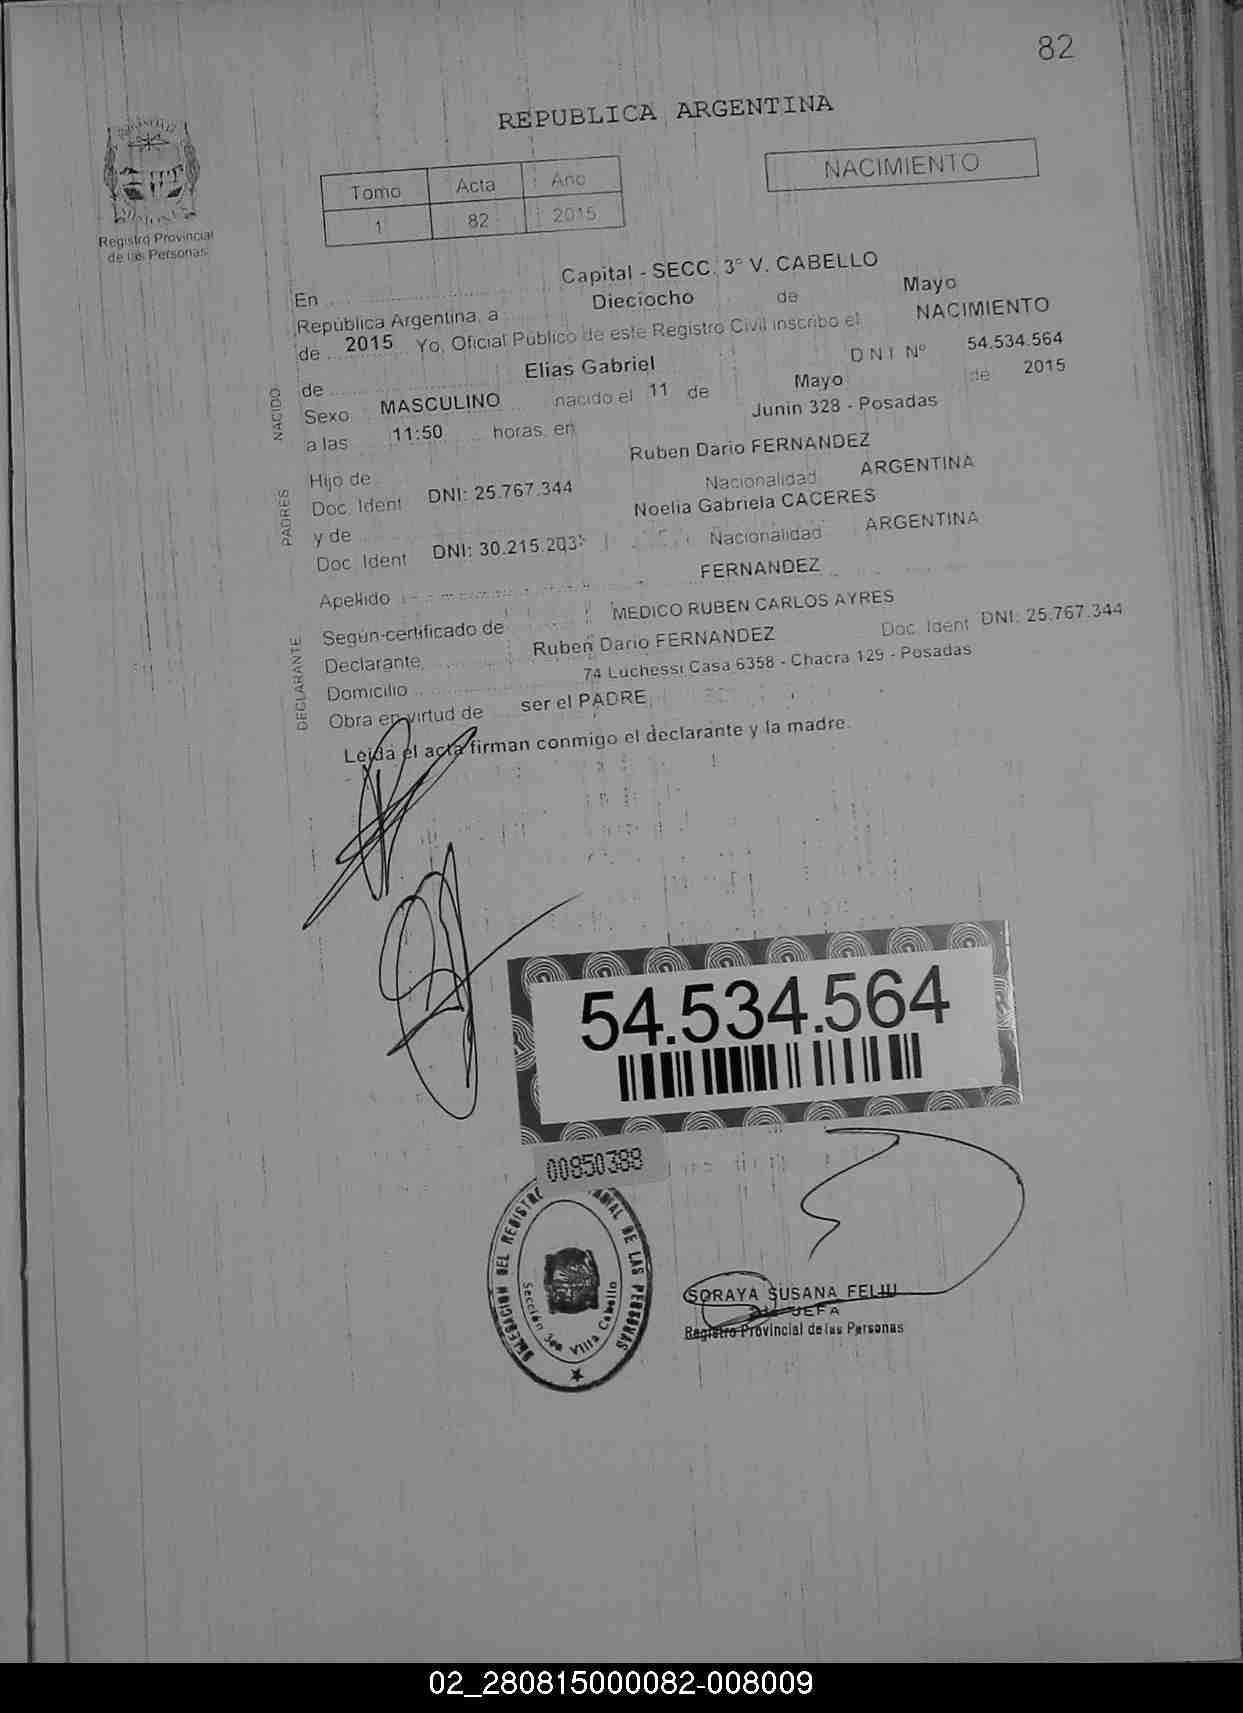 82
REPUBLICA ARGENTINA
Registro Provincial
de las Personas
Tomo Acta Año
1 82 2015
NACIMIENTO
En Capital - SECC. 3° V. CABELLO
República Argentina, a Dieciocho de Mayo
de 2015 Yo, Oficial Público de este Registro Civil inscribo el NACIMIENTO
NACIDO
de Elias Gabriel D N I Nº 54.534.564
Sexo MASCULINO nacido el 11 de Mayo de 2015
a las 11:50 horas, en Junin 328 - Posadas
PADRES
Hijo de Ruben Dario FERNANDEZ
Doc. Ident DNI: 25.767.344 Nacionalidad ARGENTINA
y de Noelia Gabriela CACERES
Doc. Ident DNI: 30.215.203 Nacionalidad ARGENTINA
Apellido FERNANDEZ
DECLARANTE
Según certificado de MEDICO RUBEN CARLOS AYRES
Declarante Ruben Dario FERNANDEZ Doc. Ident DNI: 25.767.344
Domicilio 74 Luchessi Casa 6358 - Chacra 129 - Posadas
Obra en virtud de ser el PADRE
Leida el acta firman conmigo el declarante y la madre.
54.534.564
00850388
DELEGACION DEL REGISTRO DE LAS PERSONAS
Sección 3ra Villa Cabello
SORAYA SUSANA FELIU
JEFA
Registro Provincial de las Personas
02_280815000082-008009